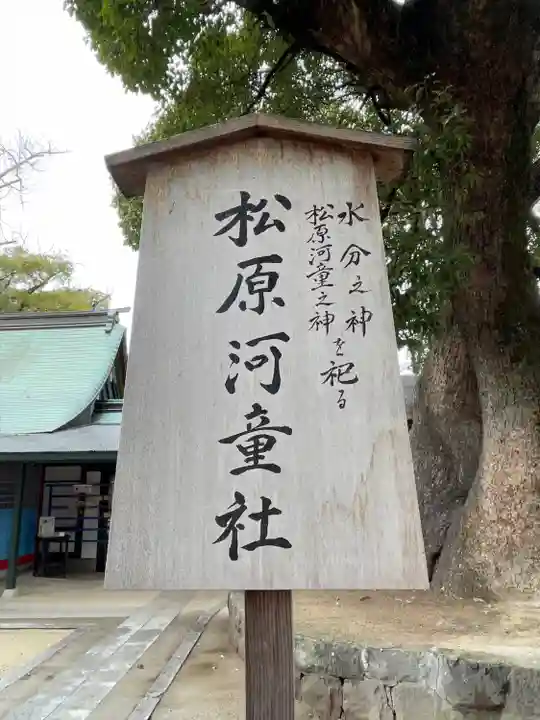 水分之神
松原河童之神を祀る
松原河童社